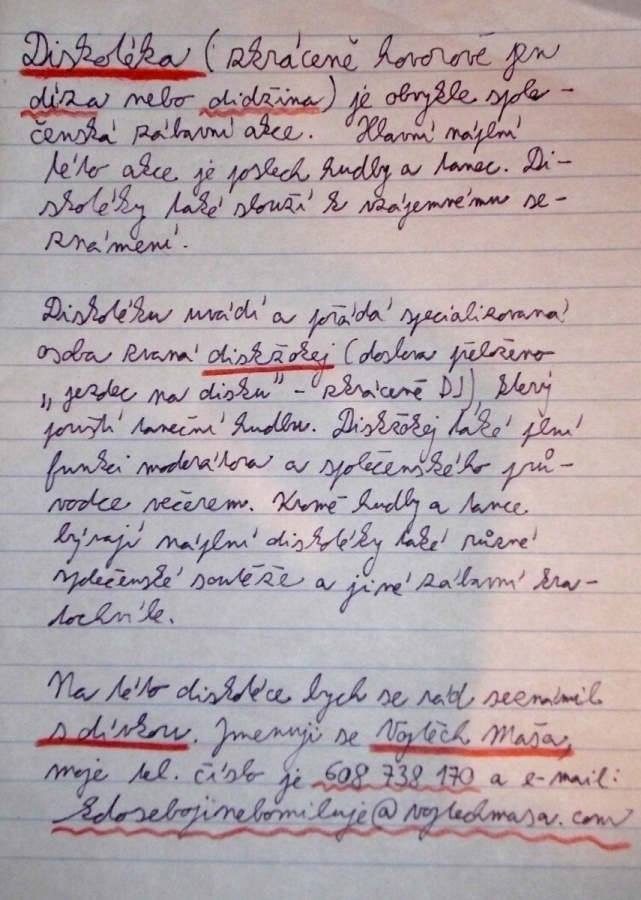 Diskotéka (zkráceně hovorově jen
díza nebo didžina) je obvykle spole-
čenská zábavní akce. Hlavní náplní
této akce je poslech hudby a tanec. Di-
skotéky také slouží k vzájemnému se-
známení.
Diskotéku uvádí a pořádá specializovaná
osoba zvaná diskžokej (doslova přeloženo
„jezdec na disku" - zkráceně DJ), který
pouští taneční hudbu. Diskžokej také plní
funkci moderátora a společenského prů-
vodce večerem. Kromě hudby a tance
bývají náplní diskotéky také různé
společenské soutěže a jiné zábavní kra-
tochvíle.
Na této diskotéce bych se rád seznámil
s dívkou. Jmenuji se Vojtěch Maša,
moje tel. číslo je 608 738 170 a e-mail:
kdosebojinebomiluje@vojtechmasa.com